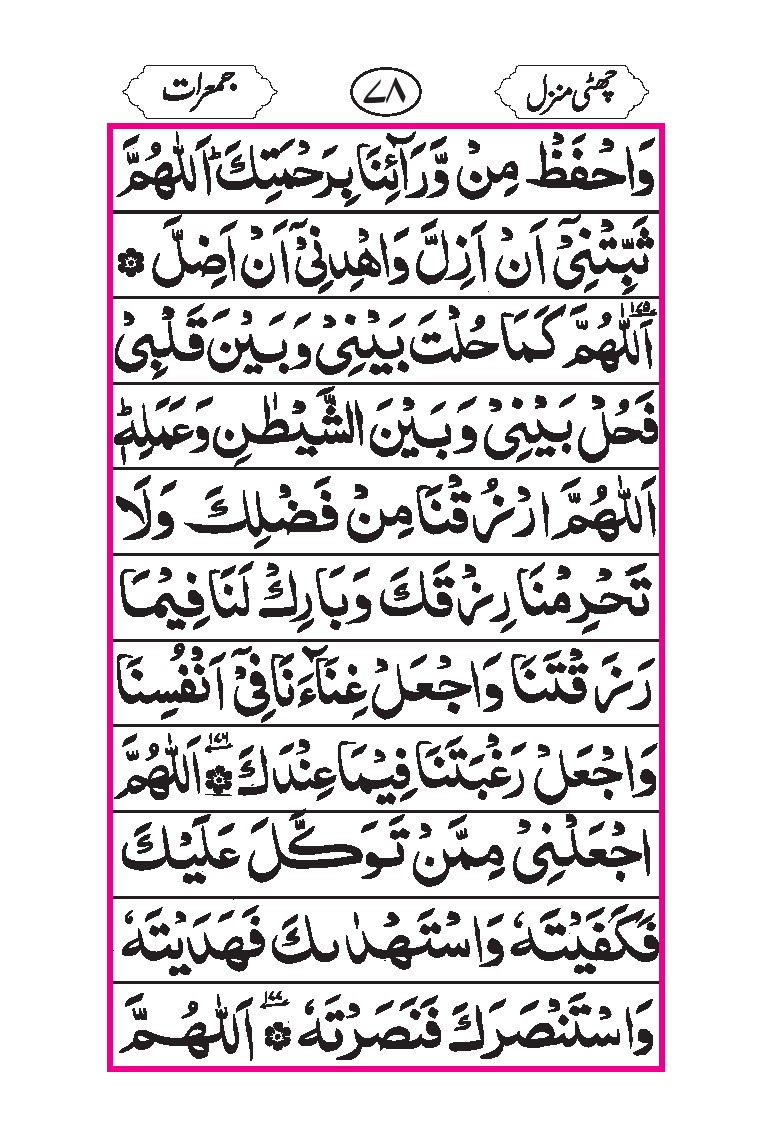 چھٹی منزل ۷۸ جمعرات
وَاحْفَظْ مِنْ وَّرَآئِنَا بِرَحْمَتِكَ ؕ اَللّٰهُمَّ
ثَبِّتْنِیْۤ اَنْ اَزِلَّ وَاهْدِنِیْۤ اَنْ اَضِلَّ ۞
۱۷۵ اَللّٰهُمَّ كَمَا حُلْتَ بَيْنِیْ وَبَيْنَ قَلْبِیْ
فَحُلْ بَيْنِیْ وَبَيْنَ الشَّيْطٰنِ وَعَمَلِهٖ ؕ
اَللّٰهُمَّ ارْزُقْنَا مِنْ فَضْلِكَ وَلَا
تَحْرِمْنَا رِزْقَكَ وَبَارِكْ لَنَا فِيْمَا
رَزَقْتَنَا وَاجْعَلْ غِنَآءَنَا فِیْۤ اَنْفُسِنَا
وَاجْعَلْ رَغْبَتَنَا فِيْمَا عِنْدَكَ ۞ ۱۷۶ اَللّٰهُمَّ
اجْعَلْنِیْ مِمَّنْ تَوَكَّلَ عَلَيْكَ
فَكَفَيْتَهٗ وَاسْتَهْدٰىكَ فَهَدَيْتَهٗ
وَاسْتَنْصَرَكَ فَنَصَرْتَهٗ ۞ ۱۷۷ اَللّٰهُمَّ